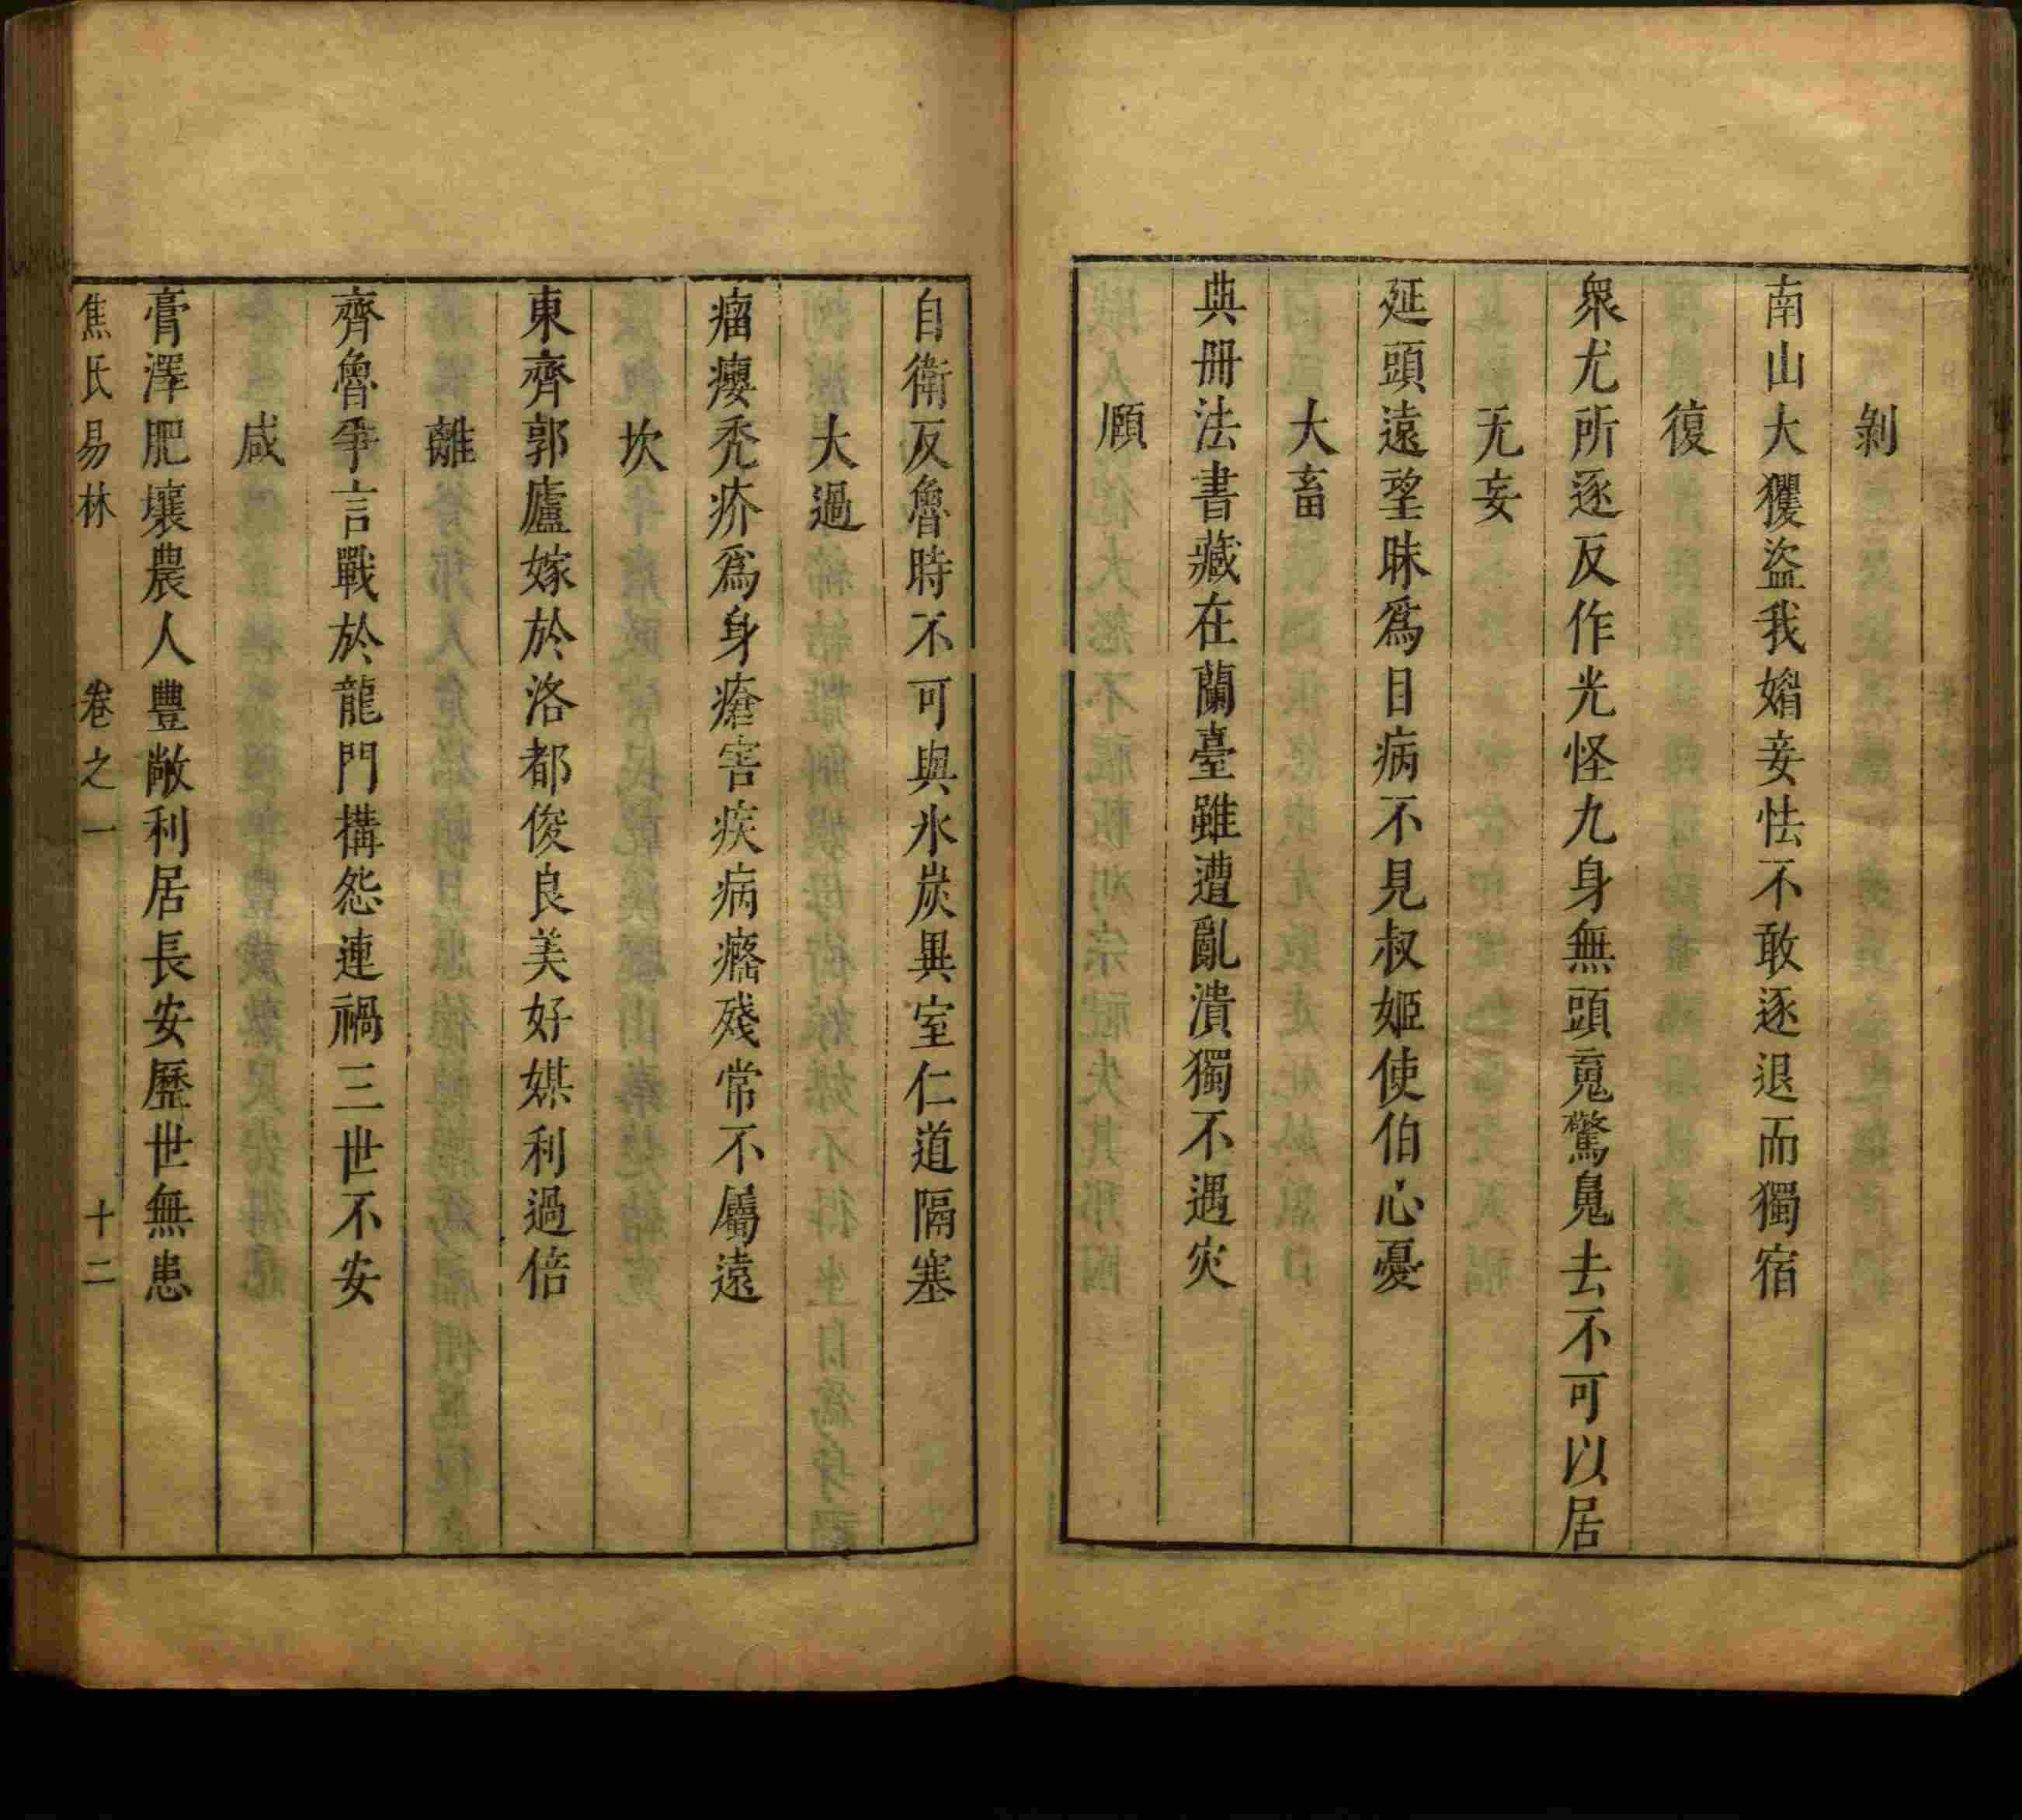 剝
南山大玃盜我媚妾怯不敢逐退而獨宿
復
衆尤所逐反作光怪九身無頭䰟驚鬼去不可以居
无妄
延頸遠望眛爲目病不見叔姬使伯心憂
大畜
典冊法書藏在蘭臺雖遭亂潰獨不遇灾
頤
自衛反魯時不可與氷炭異室仁道隔塞
大過
瘤癭禿疥爲身瘡害疾病癃殘常不屬遠
坎
東齊郭廬嫁於洛都俊良美好媒利過倍
離
齊魯爭言戰於龍門搆怨連禍三世不安
咸
膏澤肥壤農人豐敞利居長安歷世無患
焦氏易林 卷之一 十二